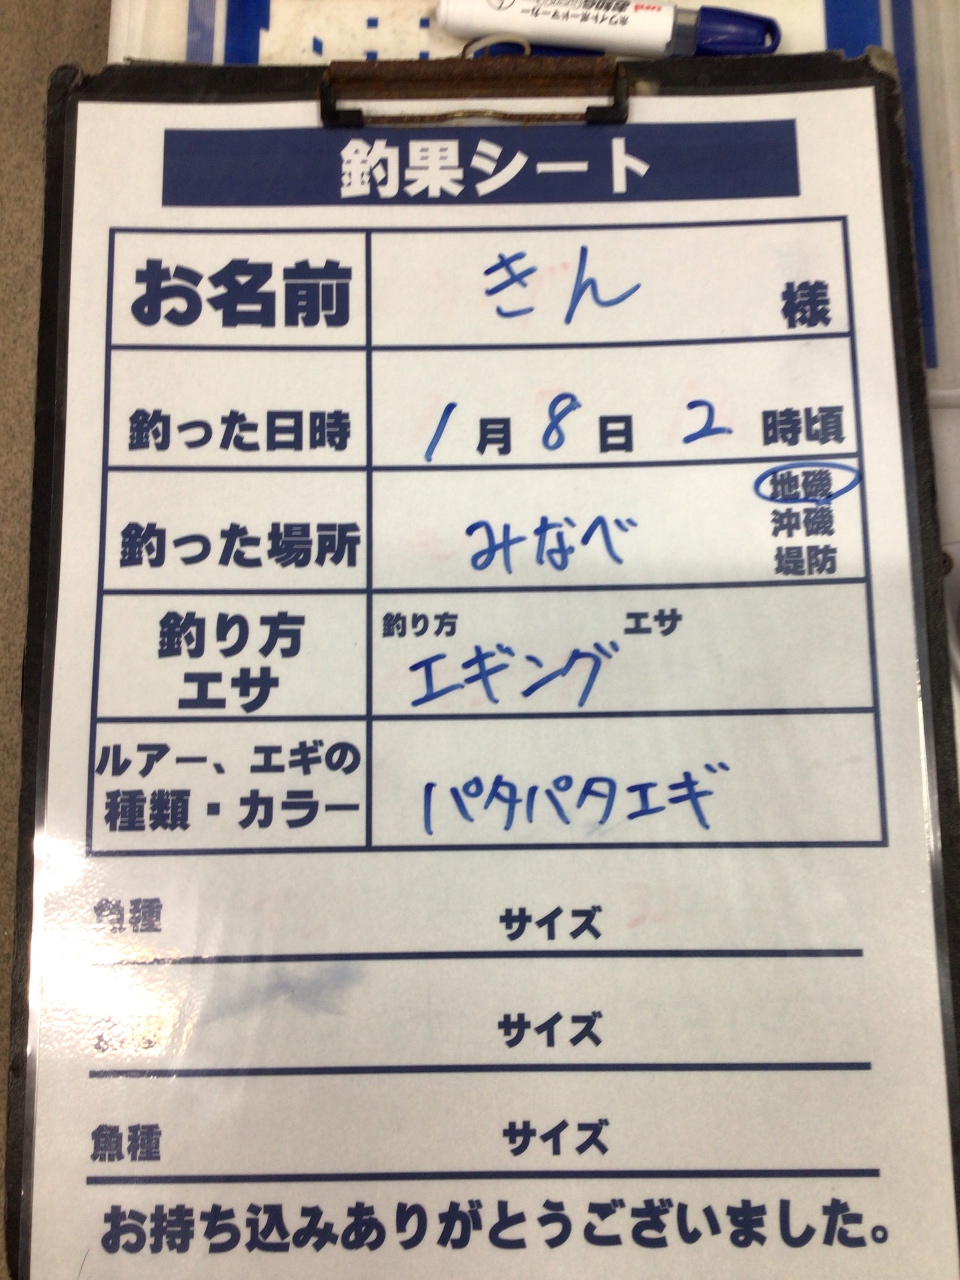 ホワイトボードマーカー
uni お知らせ
釣果シート
お名前 きん 様
釣った日時 1月8日 2時頃
釣った場所 みなべ 地磯
沖磯
堤防
釣り方 エサ 釣り方 エサ
エギング
ルアー、エギの
種類・カラー パタパタエギ
魚種 サイズ
サイズ
魚種 サイズ
お持ち込みありがとうございました。